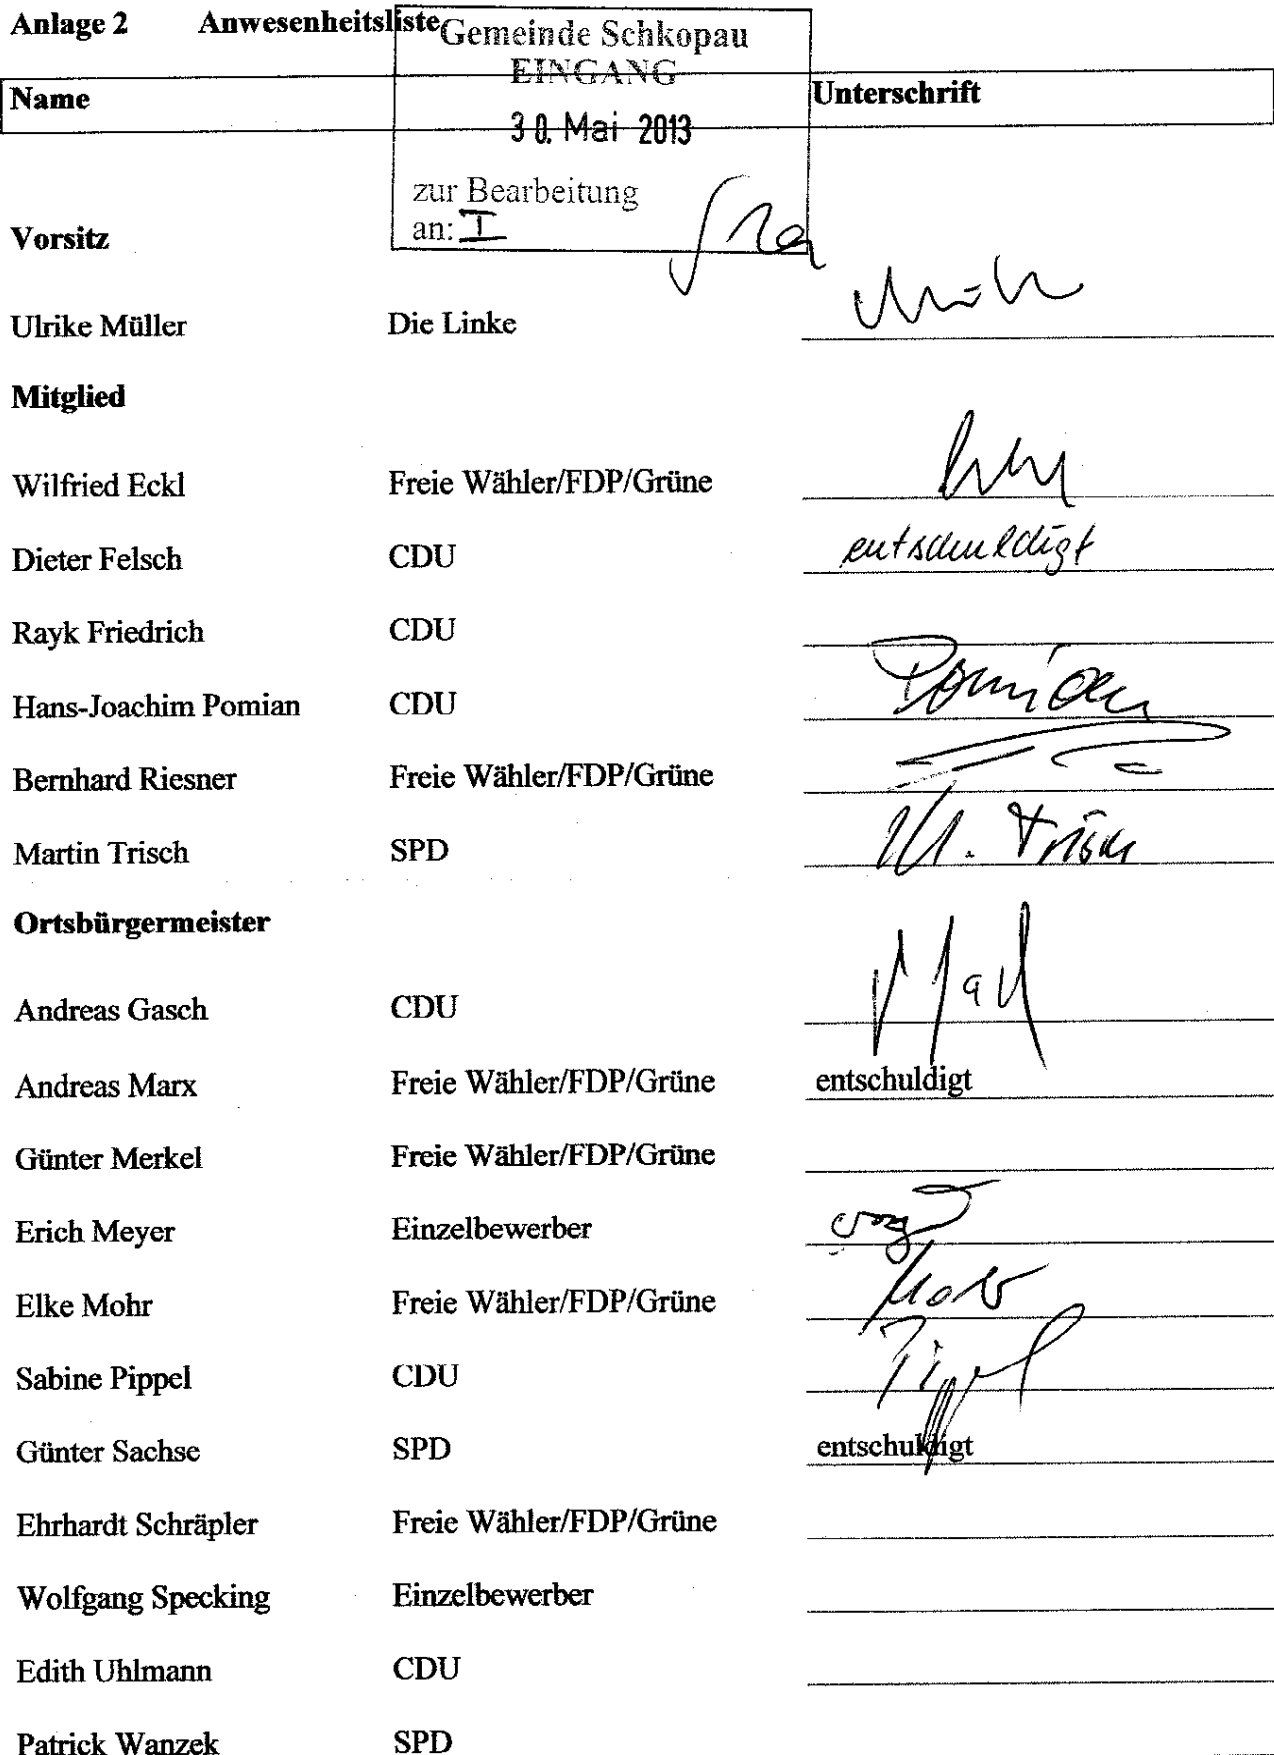 Anlage 2 Anwesenheitsliste
Gemeinde Schkopau
EINGANG
Name Unterschrift
30. Mai 2013
zur Bearbeitung
an: I
Vorsitz
Ulrike Müller Die Linke
Mitglied
Wilfried Eckl Freie Wähler/FDP/Grüne
Dieter Felsch CDU entschuldigt
Rayk Friedrich CDU
Hans-Joachim Pomian CDU Pomian
Bernhard Riesner Freie Wähler/FDP/Grüne
Martin Trisch SPD M. Trisch
Ortsbürgermeister
Andreas Gasch CDU
Andreas Marx Freie Wähler/FDP/Grüne entschuldigt
Günter Merkel Freie Wähler/FDP/Grüne
Erich Meyer Einzelbewerber
Elke Mohr Freie Wähler/FDP/Grüne Mohr
Sabine Pippel CDU Pippel
Günter Sachse SPD entschuldigt
Ehrhardt Schräpler Freie Wähler/FDP/Grüne
Wolfgang Specking Einzelbewerber
Edith Uhlmann CDU
Patrick Wanzek SPD